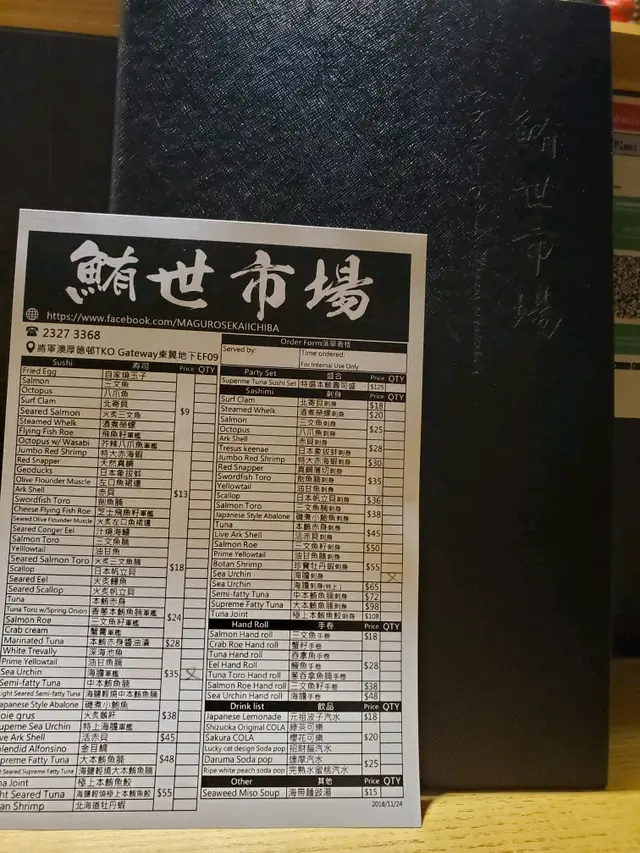 鮪世市場
鮪世市場
https://www.facebook.com/MAGUROSEKAIICHIBA
2327 3368
將軍澳厚德邨TKO Gateway東翼地下EF09
Order Form落單表格
Served by:
Time ordered:
For Internal Use Only
Sushi 壽司 Price QTY
Fried Egg 自家燒玉子
Salmon 三文魚
Octopus 八爪魚
Surf Clam 北寄貝
Seared Salmon 火炙三文魚 $9
Steamed Whelk 酒煮榮螺
Flying Fish Roe 飛魚籽軍艦
Octopus w/ Wasabi 芥辣八爪魚軍艦
Jumbo Red Shrimp 特大赤海蝦
Red Snapper 天然真鯛
Geoducks 日本象拔蚌
Olive Flounder Muscle 左口魚裙邊
Ark Shell 赤貝 $13
Swordfish Toro 劍魚腩
Cheese Flying Fish Roe 芝士飛魚籽軍艦
Seared Olive Flounder Muscle 火炙左口魚裙邊
Seared Conger Eel 汁燒海鰻
Salmon Toro 三文魚腩
Yelllowtail 油甘魚
Seared Salmon Toro 火炙三文魚腩 $18
Scallop 日本帆立貝
Seared Eel 火炙鰻魚
Seared Scallop 火炙帆立貝
Tuna 本鮪赤身
Tuna Toro w/Spring Onion 香蔥本鮪魚腩軍艦 $24
Salmon Roe 三文魚籽軍艦
Crab cream 蟹膏軍艦
Marinated Tuna 本鮪赤身醬油漬 $28
White Trevally 深海池魚
Prime Yellowtail 油甘魚腩
Sea Urchin 海膽軍艦 $35
Semi-fatty Tuna 中本鮪魚腩
Light Seared Semi-fatty Tuna 海鹽輕燒中本鮪魚腩
Japanese Style Abalone 磯煮小鮑魚
oie grus 火炙鵝肝 $38
upeme Sea Urchin 特上海膽軍艦
ve Ark Shell 活赤貝 $45
plendid Alfonsino 金目鯛
upreme Fatty Tuna 大本鮪魚腩 $48
t Seared Supreme Fatty Tuna 海鹽輕燒大本鮪魚腩
na Joint 極上本鮪魚鮫
ht Seared Tuna 海鹽輕燒極上本鮪魚鮫 $55
an Shrimp 北海道牡丹蝦
Party Set 盛合 Price QTY
Superme Tuna Sushi Set 特選本鮪壽司盛 $125
Sashimi 刺身 Price QTY
Surf Clam 北寄貝刺身 $18
Steamed Whelk 酒煮榮螺刺身 $20
Salmon 三文魚刺身
Octopus 八爪魚刺身 $25
Ark Shell 赤貝刺身
Tresus keenae 日本象拔蚌刺身 $28
Jumbo Red Shrimp 特大赤海蝦刺身 $30
Red Snapper 真鯛薄切刺身
Swordfish Toro 劍魚腩刺身 $35
Yellowtail 油甘魚刺身
Scallop 日本帆立貝刺身 $36
Salmon Toro 三文魚腩刺身 $38
Japanese Style Abalone 磯煮小鮑魚刺身
Tuna 本鮪赤身刺身 $45
Live Ark Shell 活赤貝刺身
Salmon Roe 三文魚籽刺身 $50
Prime Yellowtail 油甘魚腩刺身
Botan Shrimp 珍寶牡丹蝦刺身 $55
Sea Urchin 海膽刺身
Sea Urchin 海膽刺身(特上) $65
Semi-fatty Tuna 中本鮪魚腩刺身 $72
Supreme Fatty Tuna 大本鮪魚腩刺身 $98
Tuna Joint 極上本鮪魚鮫刺身 $108
Hand Roll 手卷 Price QTY
Salmon Hand roll 三文魚手卷 $18
Crab Roe Hand roll 蟹籽手卷
Tuna Hand roll 吞拿魚手卷
Eel Hand Roll 鰻魚手卷 $28
Tuna Toro Hand roll 蔥吞拿魚腩手卷
Salmon Roe Hand roll 三文魚籽手卷 $38
Sea Urchin Hand roll 海膽手卷 $48
Drink list 飲品 Price QTY
Japanese Lemonade 元祖波子汽水 $18
Shizuoka Original COLA 綠茶可樂
Sakura COLA 櫻花可樂 $20
Lucky cat design Soda pop 招財貓汽水
Daruma Soda pop 達摩汽水 $25
Ripe white peach soda pop 完熟水蜜桃汽水
Other 其他 Price QTY
Seaweed Miso Soup 海帶麵豉湯 $15
2018/11/24